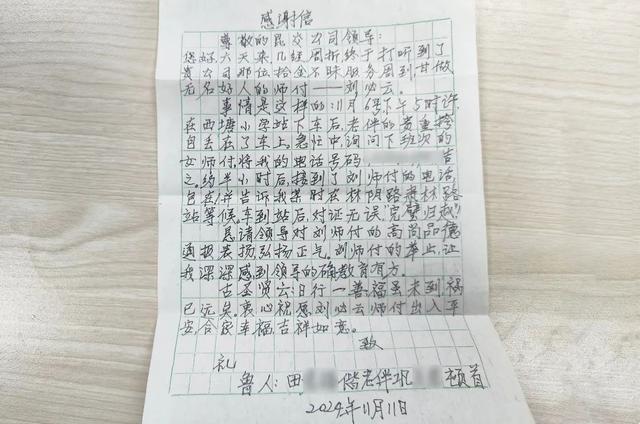 感谢信
尊敬的昆交公司领导:
您好,六天来,几经周折,终于打听到了
贵公司那位拾金不昧服务周到,甘做
无名好人的师付——刘必云。
事情是这样的:11月6号下午5时许,
在西塘小学站下车后,老伴的贵重挎
包丢在了车上。急忙中询问下班次的
女师付,将我的电话号码 告
之。约半小时后,接到了刘师付的电话,
包在,并告诉我某时在林阴路素林路
站等候,车到站后,对证无误"完璧归赵"
恳请领导对刘师付的高尚品德
通报表扬弘扬正气。刘师付的举止,让
我深深感到领导的确教育有方。
古圣贤云:日行一善,福虽未到,祸
已远矣。衷心祝愿刘必云师付出入平
安,合家幸福,吉祥如意。
致
礼
鲁人:田 偕老伴巩 顿首
2024年11月11日